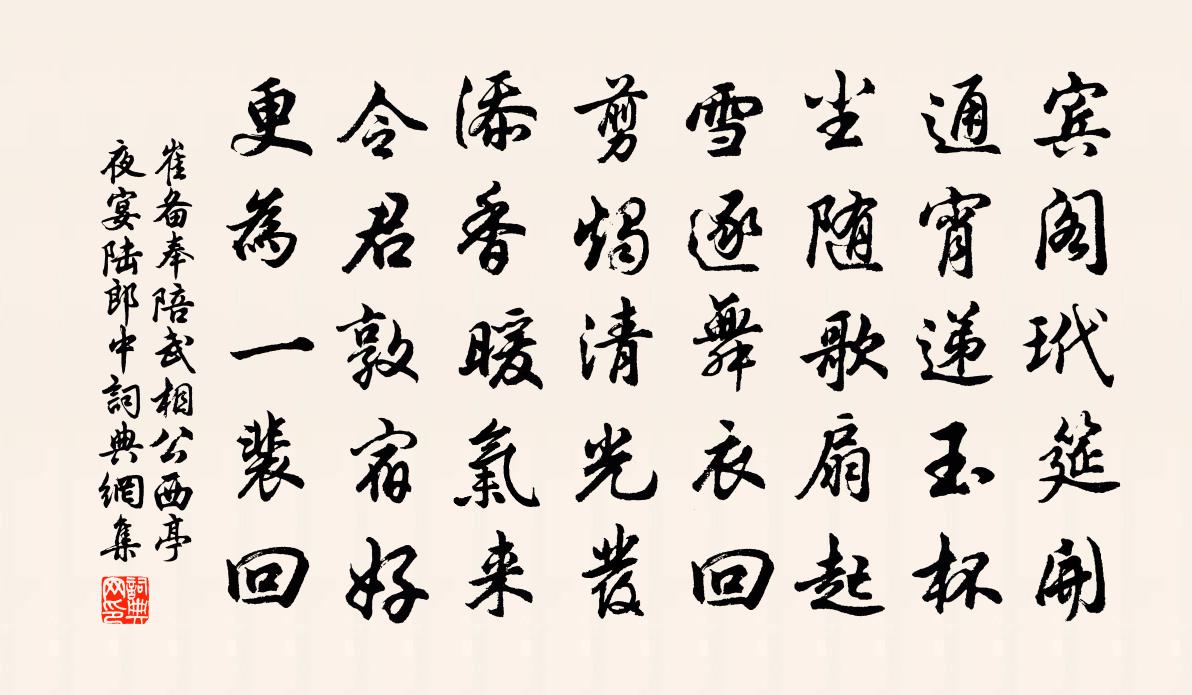 宾阁玳筵開
通宵递玉杯
坐随歌扇起
雪逐舞衣回
剪烛清光發
添香暖氣来
令君敦宿好
更為一裴回
崔备奉陪武相公西亭
夜宴陆郎中詞典網集
詞典
网印